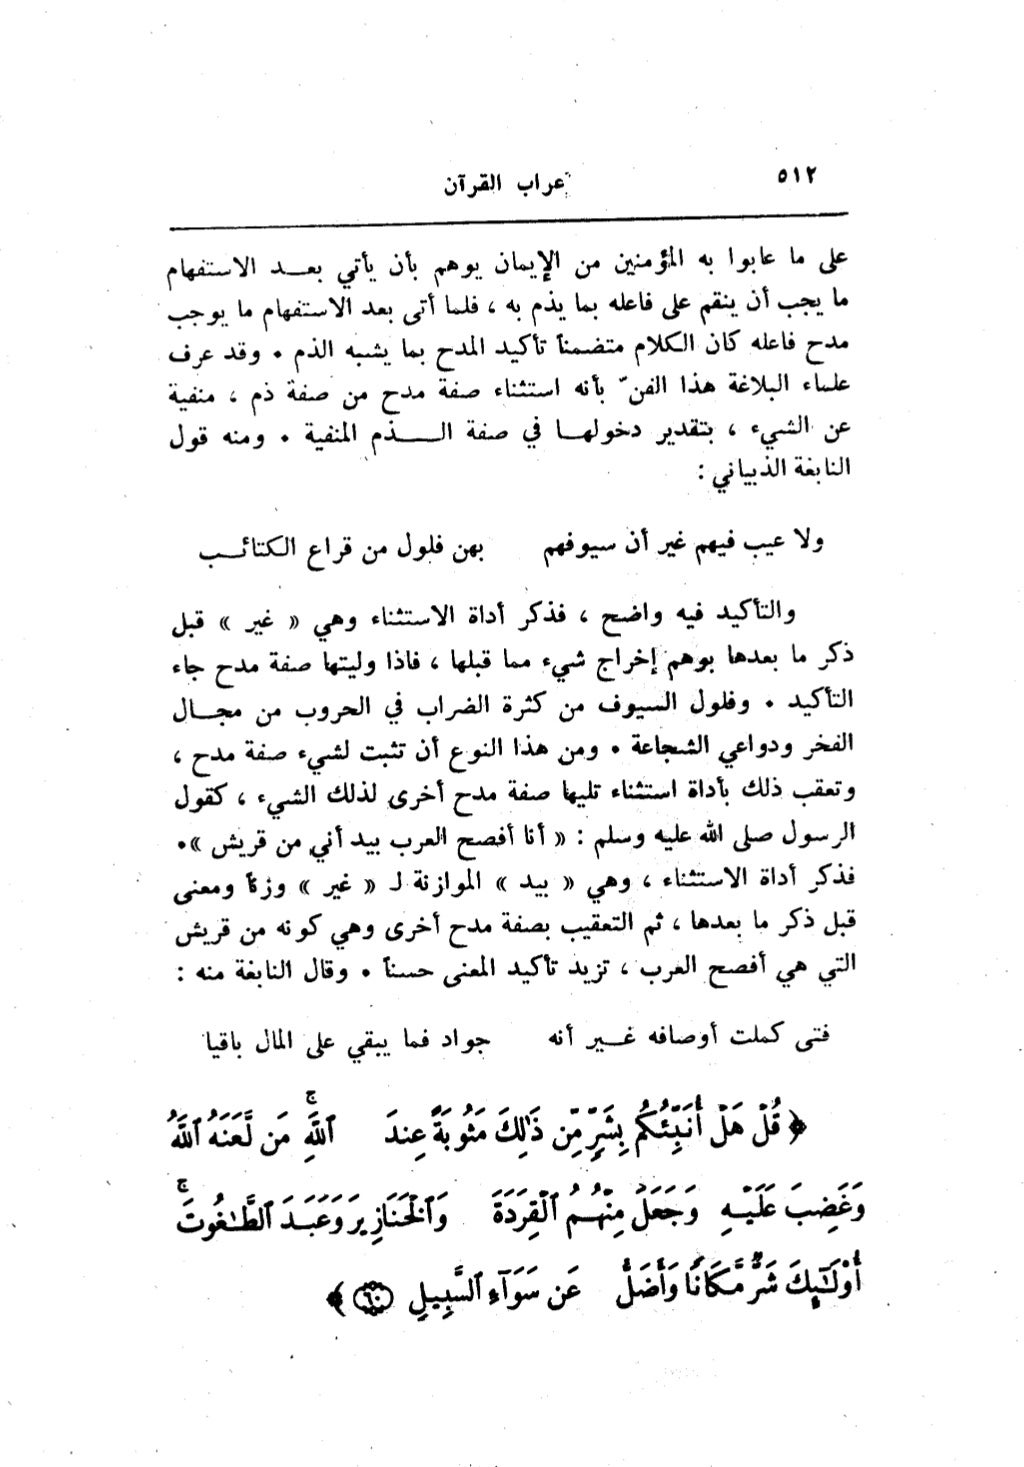 ٥١٢
إعراب القرآن
على ما عابوا به المؤمنين من الإيمان يوهم بأن يأتي بعــد الاستفهام
ما يجب أن ينقم على فاعله بما يذم به ، فلما أتى بعد الاستفهام ما يوجب
مدح فاعله كان الكلام متضمناً تأكيد المدح بما يشبه الذم . وقد عرف
علماء البلاغة هذا الفنّ بأنه استثناء صفة مدح من صفة ذم ، منفية
عن الشيء ، بتقدير دخولهــا في صفة الــــذم المنفية . ومنه قول
النابغة الذبياني :
ولا عيب فيهم غير أن سيوفهم بهن فلول من قراع الكتائــب
والتأكيد فيه واضح ، فذكر أداة الاستثناء وهي « غير » قبل
ذكر ما بعدها يوهم إخراج شيء مما قبلها ، فاذا وليتها صفة مدح جاء
التأكيد . وفلول السيوف من كثرة الضراب في الحروب من مجــال
الفخر ودواعي الشجاعة . ومن هذا النوع أن تثبت لشيء صفة مدح ،
وتعقب ذلك بأداة استثناء تليها صفة مدح أخرى لذلك الشيء ، كقول
الرسول صلى الله عليه وسلم : « أنا أفصح العرب بيد أني من قريش ».
فذكر أداة الاستثناء ، وهي « بيد » الموازنة لـ « غير » وزناً ومعنى
قبل ذكر ما بعدها ، ثم التعقيب بصفة مدح أخرى وهي كونه من قريش
التي هي أفصح العرب ، تزيد تأكيد المعنى حسناً . وقال النابغة منه :
فتى كملت أوصافه غــير أنه جواد فما يبقي على المال باقيا
﴿ قُلْ هَلْ أُنَبِّئُكُم بِشَرٍّ مِّن ذَٰلِكَ مَثُوبَةً عِندَ ٱللَّهِ ۚ مَن لَّعَنَهُ ٱللَّهُ
وَغَضِبَ عَلَيْهِ وَجَعَلَ مِنْهُمُ ٱلْقِرَدَةَ وَٱلْخَنَازِيرَ وَعَبَدَ ٱلطَّٰغُوتَ ۚ
أُوْلَٰٓئِكَ شَرٌّ مَّكَانًا وَأَضَلُّ عَن سَوَآءِ ٱلسَّبِيلِ ٦٠ ﴾